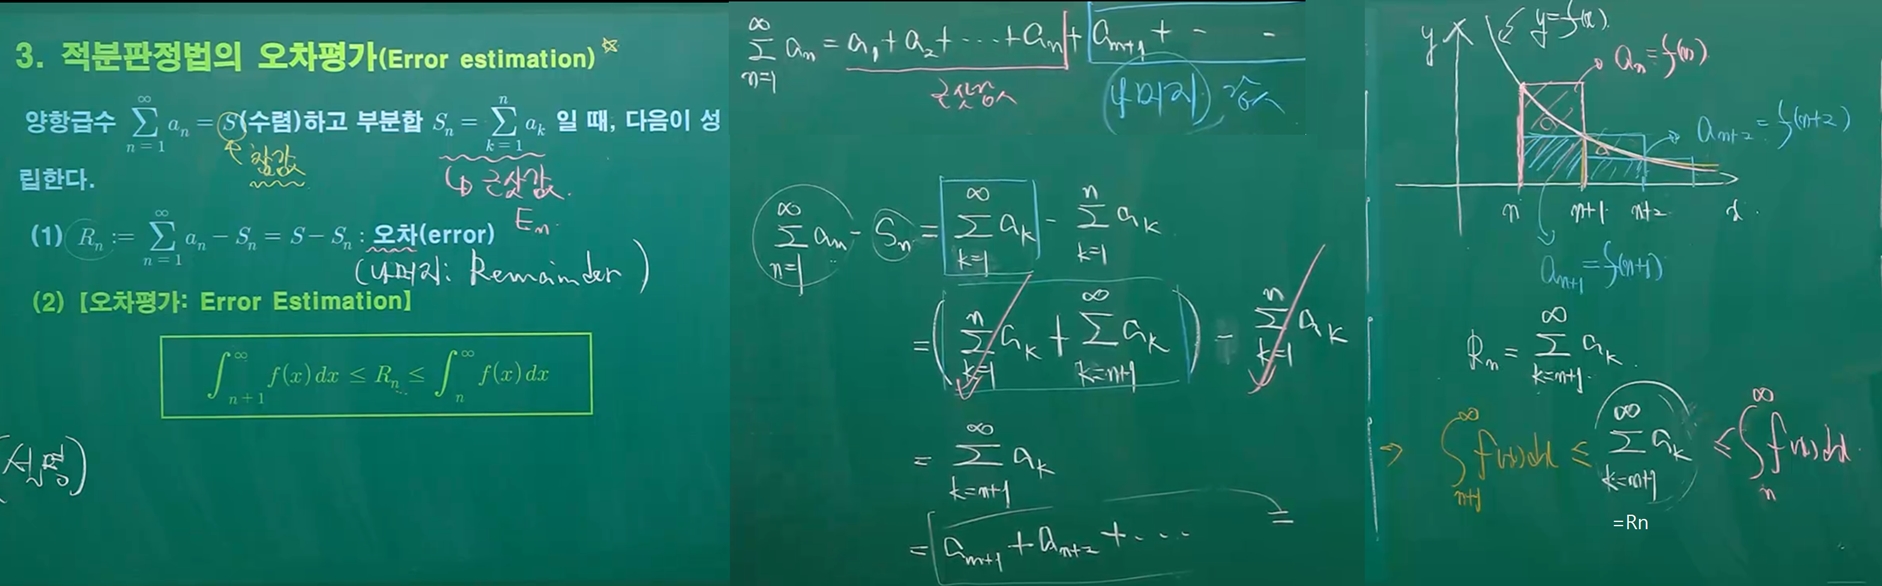 3. 적분판정법의 오차평가(Error estimation)
양항급수 \sum_{n=1}^{∞} a_n = S(수렴)하고 부분합 S_n = \sum_{k=1}^{n} a_k 일 때, 다음이 성
참값
립한다.
근삿값
E_n
(1) R_n := \sum_{n=1}^{∞} a_n - S_n = S - S_n : 오차(error)
(나머지: Remainder)
(2) [오차평가: Error Estimation]
\int_{n+1}^{∞} f(x) dx ≤ R_n ≤ \int_{n}^{∞} f(x) dx
(설명)
\sum_{n=1}^{∞} a_n = a_1 + a_2 + ... + a_n + a_{n+1} + - -
근삿값
나머지
\sum_{n=1}^{∞} a_n - S_n = \sum_{k=1}^{∞} a_k - \sum_{k=1}^{n} a_k
= ( \sum_{k=1}^{n} a_k + \sum_{k=n+1}^{∞} a_k ) - \sum_{k=1}^{n} a_k
= \sum_{k=n+1}^{∞} a_k
= a_{n+1} + a_{n+2} + ...
y
y=f(x)
a_n = f(n)
a_{n+2} = f(n+2)
n n+1 n+2 x
a_{n+1} = f(n+1)
R_n = \sum_{k=n+1}^{∞} a_k
→ \int_{n+1}^{∞} f(x)dx ≤ \sum_{k=n+1}^{∞} a_k ≤ \int_{n}^{∞} f(x)dx
=Rn